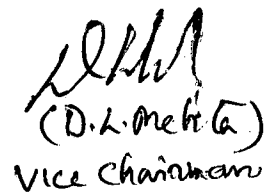 (D.L. Mehta)
Vice Chairman